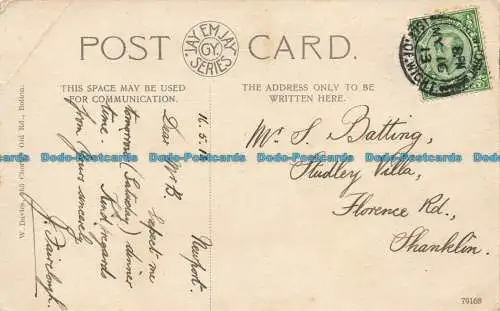 POST CARD.
JAY EM JAY
GY.
SERIES
THIS SPACE MAY BE USED
FOR COMMUNICATION.
THE ADDRESS ONLY TO BE
WRITTEN HERE.
Newport.
16.5.13
Dear Mr B.
Expect me
tomorrow (Saturday) dinner
time. Kind regards
from yours sincerely
J. Fairclough.
Mr S. Batting,
Studley Villa,
Florence Rd.,
Shanklin.
Dodo-Postcards Dodo-Postcards Dodo-Postcards Dodo-Postcards
W. Davies, Old Rd., Bolton.
79168